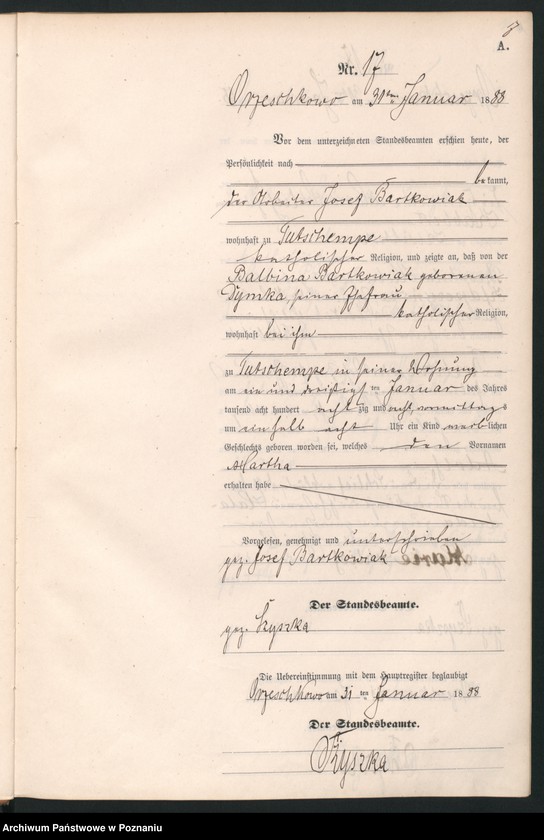 8
A.
Nr. 17
Orzeschkowo am 31ten Januar 1888
Vor dem unterzeichneten Standesbeamten erschien heute, der
Persönlichkeit nach
bekannt,
der Arbeiter Josef Bartkowiak
wohnhaft zu Tutschempe
katholischer Religion, und zeigte an, daß von der
Balbina Bartkowiak geborenen
Dymka, seiner Ehefrau
katholischer Religion,
wohnhaft bei ihm
zu Tutschempe in seiner Wohnung
am ein und dreißigsten Januar des Jahres
tausend acht hundert achtzig und acht, vormittags
um einhalb acht Uhr ein Kind weiblichen
Geschlechts geboren worden sei, welches den Vornamen
Martha
erhalten habe
Vorgelesen, genehmigt und unterschrieben
gez. Josef Bartkowiak
Der Standesbeamte.
gez. Kyszka
Die Uebereinstimmung mit dem Hauptregister beglaubigt
Orzeschkowo am 31 ten Januar 1888
Der Standesbeamte.
Kyszka
Archiwum Państwowe w Poznaniu